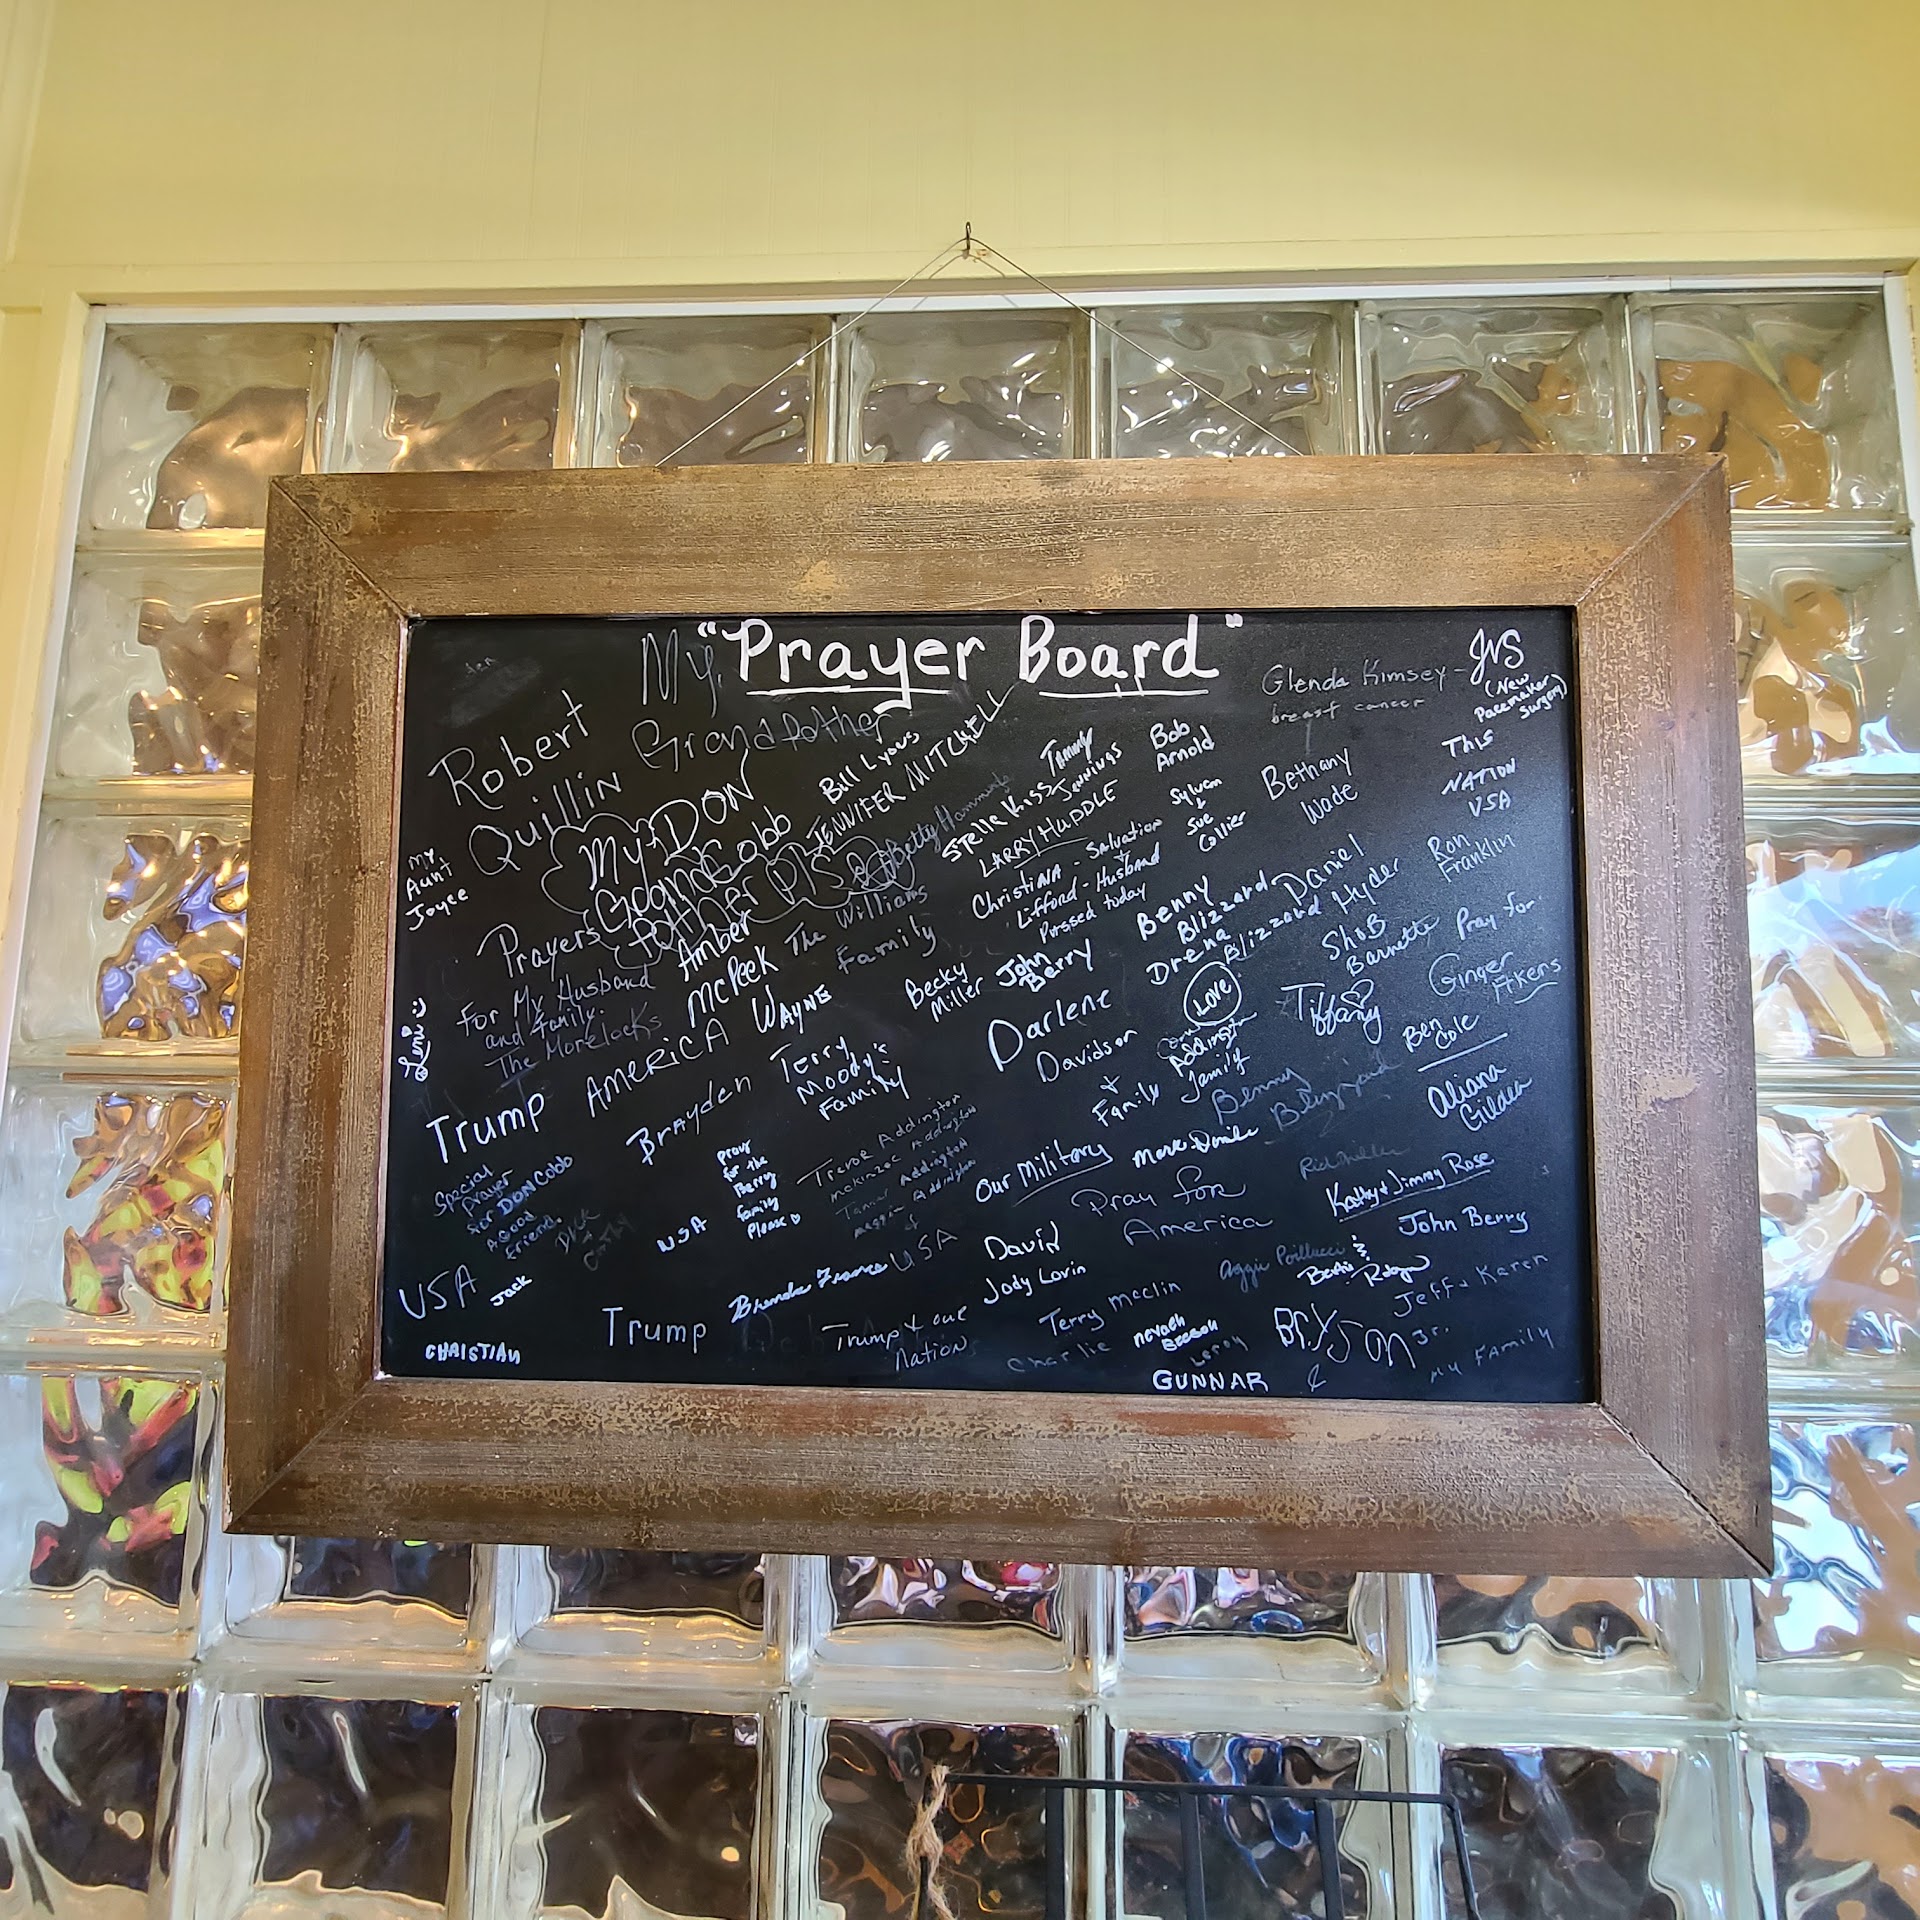 "Prayer Board"
My
Grandfather
Robert
Quillin
My
Aunt
Joyce
My DON
Cobb
Bill Lyons
JENNIFER MITCHELL
Betty
The Williams
Family
Prayers
For My Husband
and family.
The Morelocks
Amber
McPeek
WAYNE
AMERICA
Trump
Brayden
Terry
Moody's
Family
Stella Kiss
Tammy
Jennings
LARRY HUDDLE
Christiana - Salvation
Lifford - Husband
Passed today
Bob
Arnold
Sylvan
&
Sue
Collier
Glenda Kimsey -
breast cancer
JVS
(New
Pacemaker
Surgery)
This
NATION
USA
Bethany
Wade
Ron
Franklin
Daniel
Hyder
Benny
Blizzard
Drena
Blizzard
Barnette
Pray for
Ginger
Akers
Becky
Miller
John
Berry
Darlene
Davidson
+
Family
LOVE
Addington
Family
Tiffany
Ben
Cole
Aliana
Gilden
Benny
Special
prayer
for DON COBB
A Good
Friend
Jack
USA
CHRISTIAN
USA
pray
for the
Berry
family
Please
Trevor Addington
Addington
Addington
Addington
USA
Brenda France
Trump
Trump & our
Nation
Our Military
Pray for
America
David
Jody Lovin
Terry McClin
Charlie
Nevaeh
Leroy
GUNNAR
Kathy & Jimmy Rose
John Berry
Jeff & Karen
Bryson
&
My Family